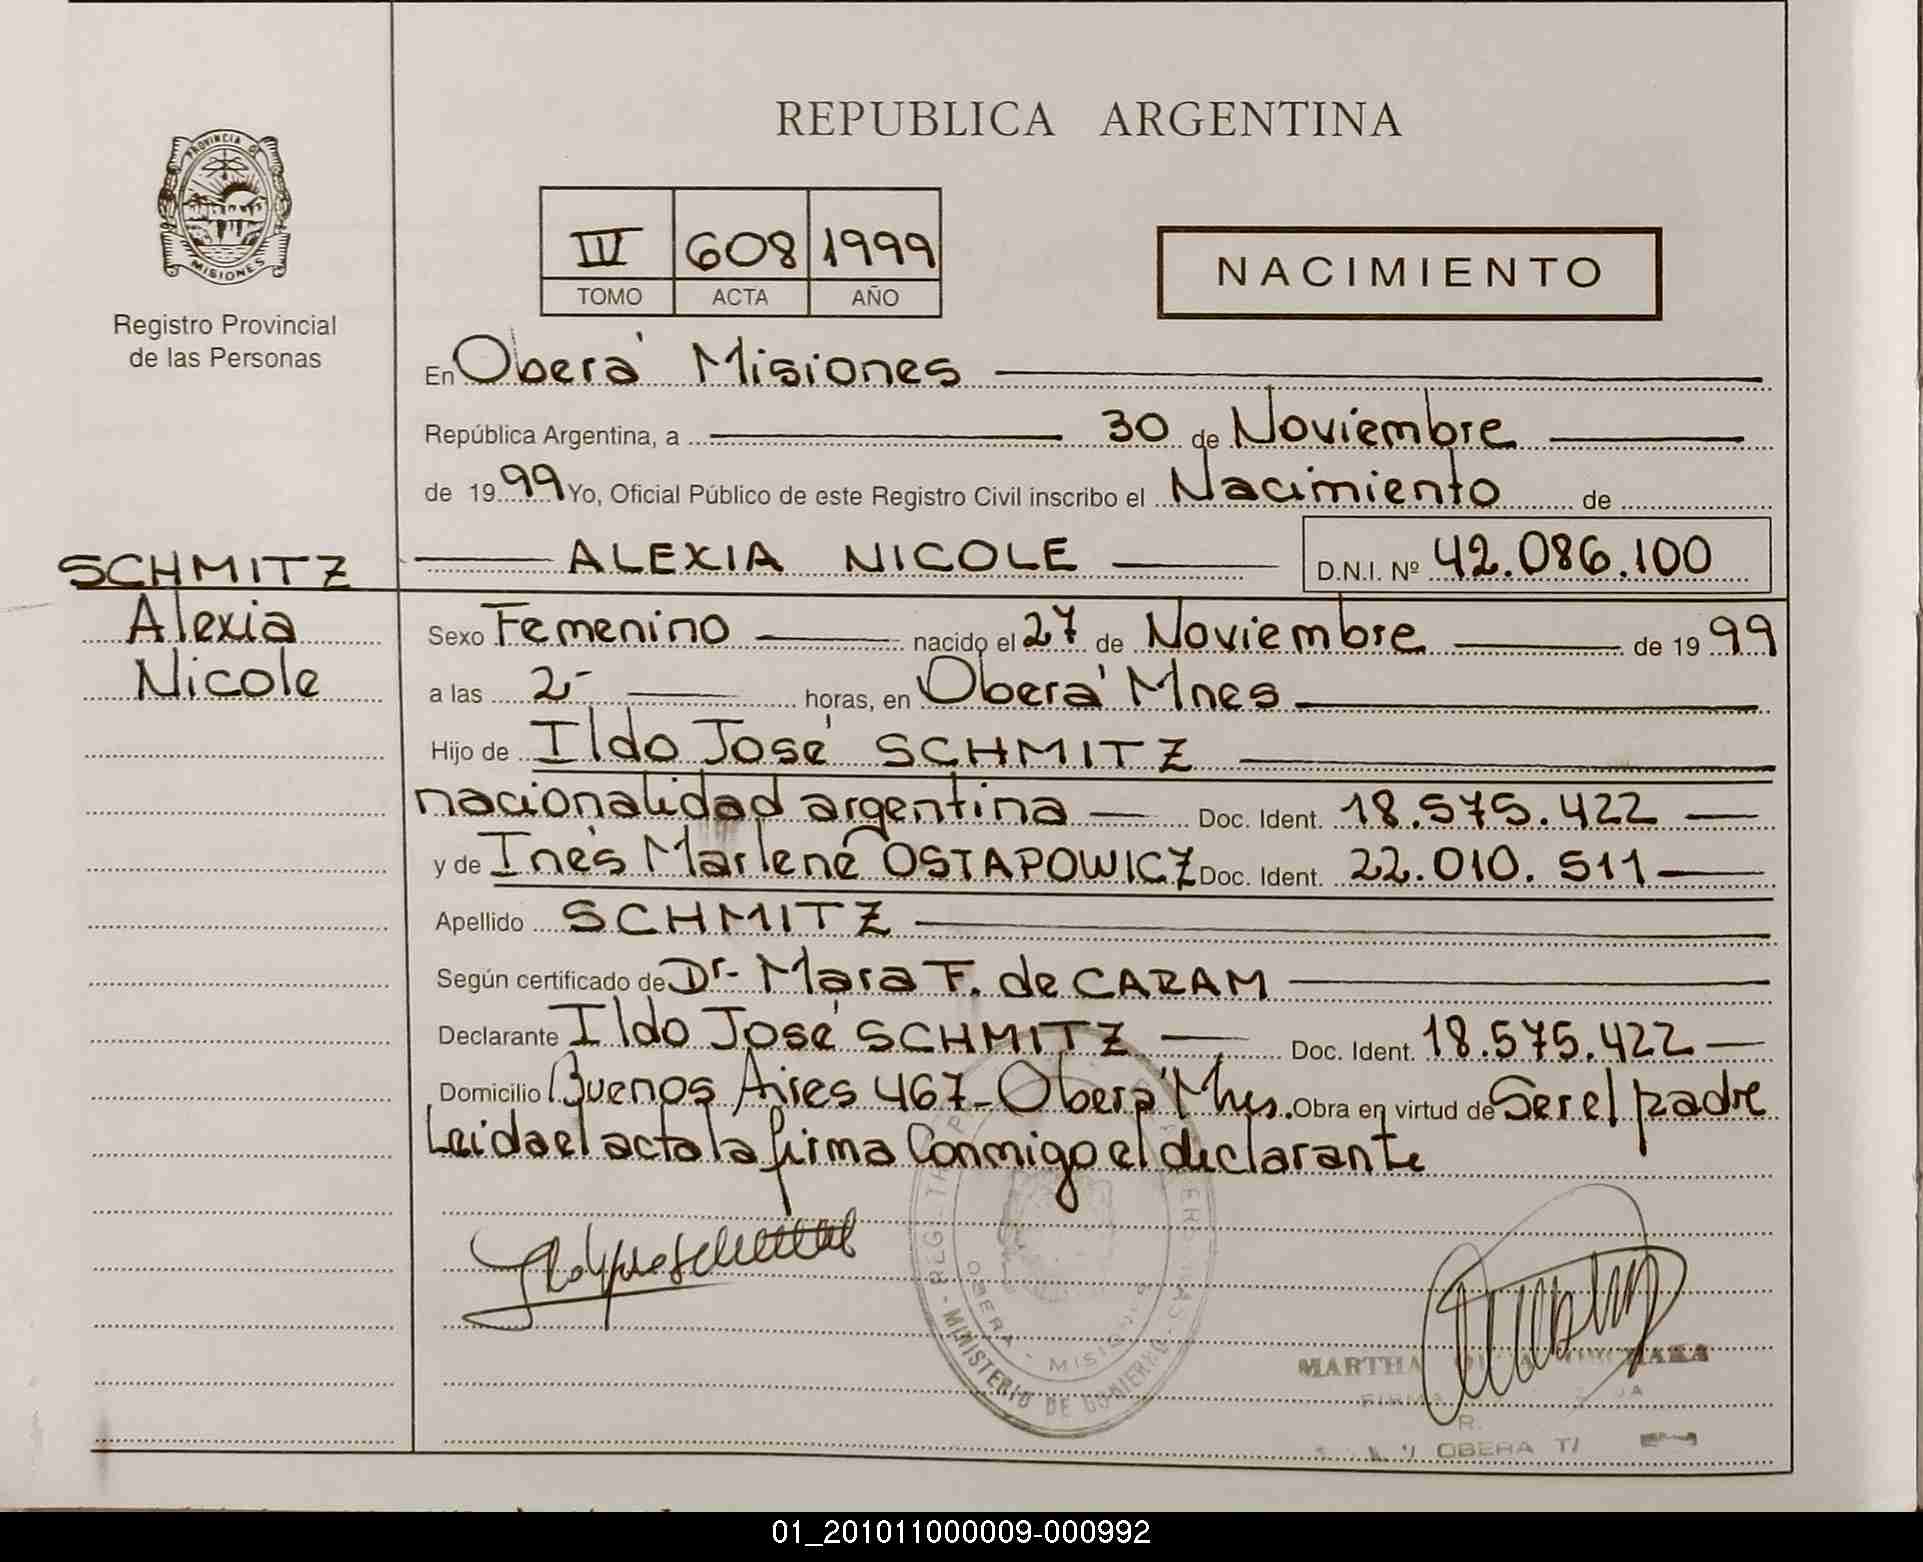 REPUBLICA ARGENTINA
PROVINCIA DE
MISIONES
Registro Provincial
de las Personas
III 608 1999
TOMO ACTA AÑO
NACIMIENTO
En Oberá Misiones
República Argentina, a 30 de Noviembre
de 1999 Yo, Oficial Público de este Registro Civil inscribo el Nacimiento de
SCHMITZ
Alexia
Nicole
ALEXIA NICOLE D.N.I. Nº 42.086.100
Sexo Femenino nacido el 27 de Noviembre de 1999
a las 2- horas, en Oberá Mnes
Hijo de Ildo José SCHMITZ
nacionalidad argentina Doc. Ident. 18.575.422
y de Inés Marlene OSTAPOWICZ Doc. Ident. 22.010.511
Apellido SCHMITZ
Según certificado de Dr. Mara F. de CARAM
Declarante Ildo José SCHMITZ Doc. Ident. 18.575.422
Domicilio Buenos Aires 467- Oberá Mnes. Obra en virtud de Ser el padre
Leida el acta la firma Conmigo el declarante
MINISTERIO DE GOBIERNO
OBERA - MISIONES
MARTHA
OBERA
01_201011000009-000992